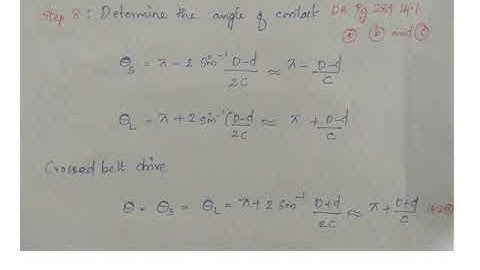 Step 8: Determine the angle of contact DR Pg 289 14.1
(a) (b) and (c)
θs = π - 2 sin⁻¹ D-d/2C ≈ π - D-d/C
θL = π + 2 sin⁻¹ (D-d/2C ≈ π + D-d/C
Crossed belt drive
θ = θs = θL = π + 2 sin⁻¹ D+d/2C ≈ π + D+d/C